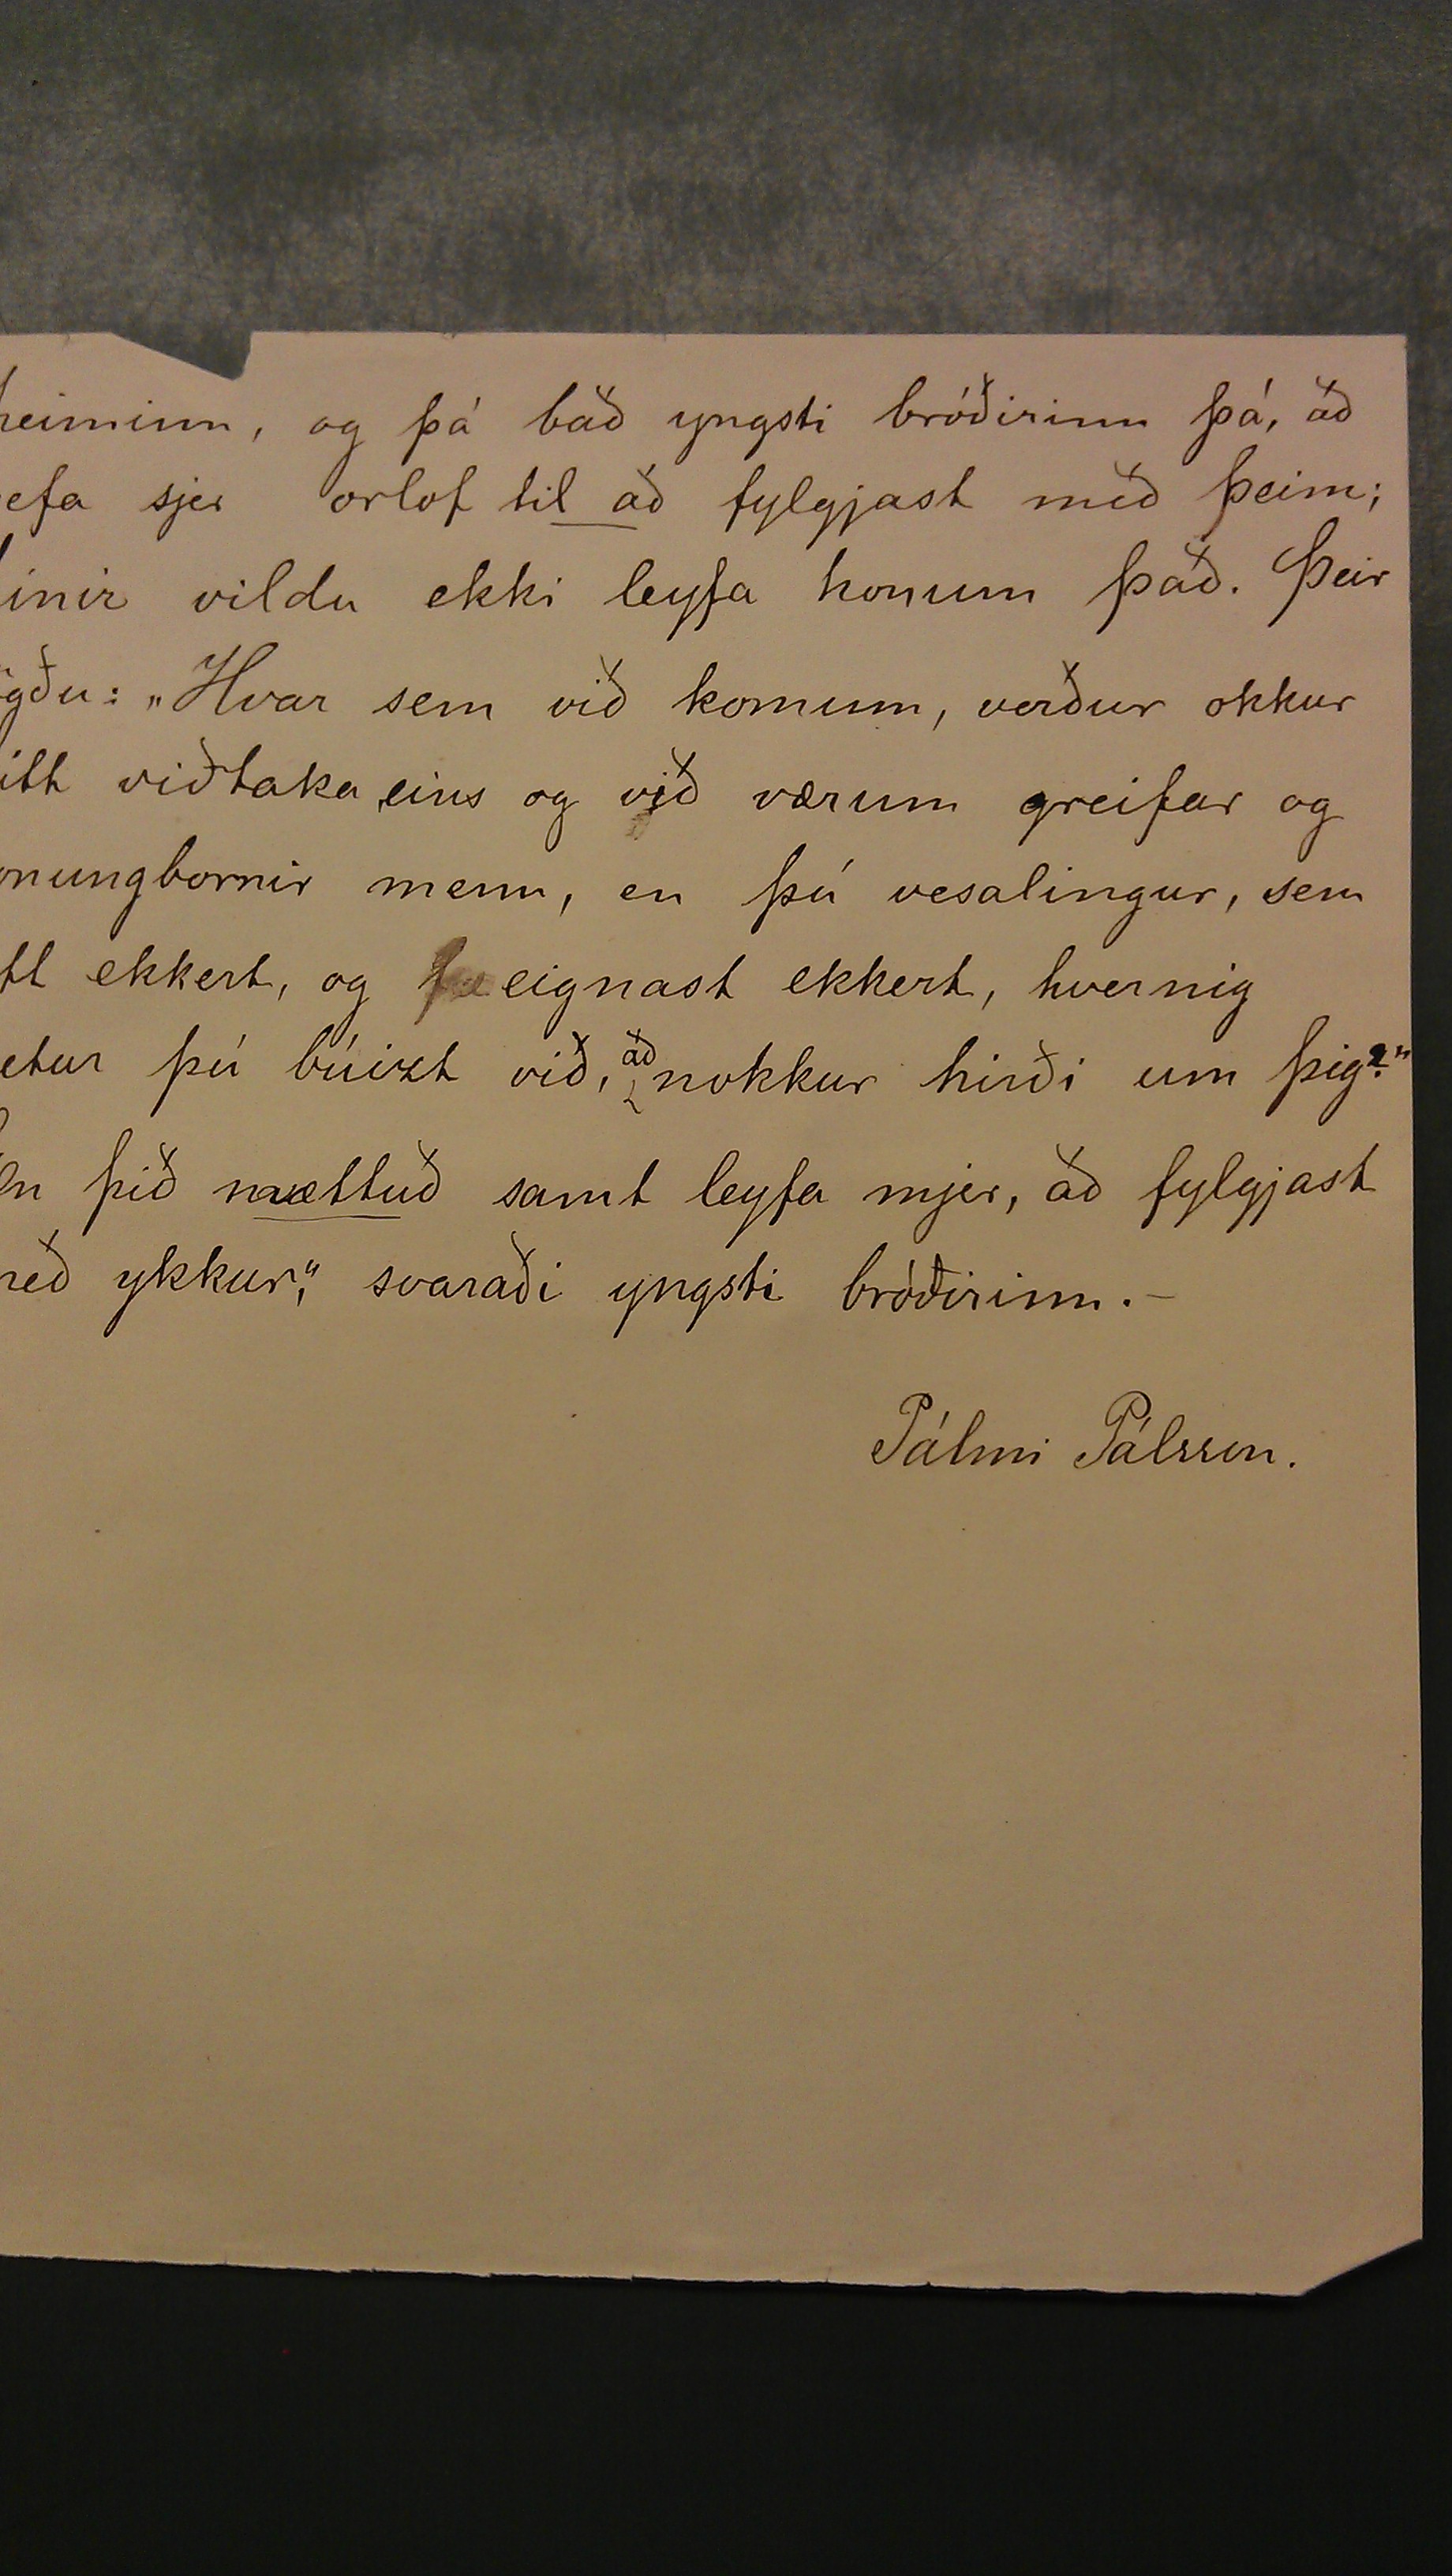 heiminn, og þá bað yngsti bróðirinn þá, að
efa sjer orlof til að fylgjast með þeim;
inir vildu ekki leyfa honum það. Þeir
gðu: „Hvar sem við komum, verður okkur
itt viðtaka, eins og við værum greifar og
onungbornir menn, en þú vesalingur, sem
tt ekkert, og eignast ekkert, hvernig
etur þú búizt við, að nokkur hirði um þig?"
En þið mættuð samt leyfa mjer, að fylgjast
með ykkur," svaraði yngsti bróðirinn.–
Pálmi Pálsson.